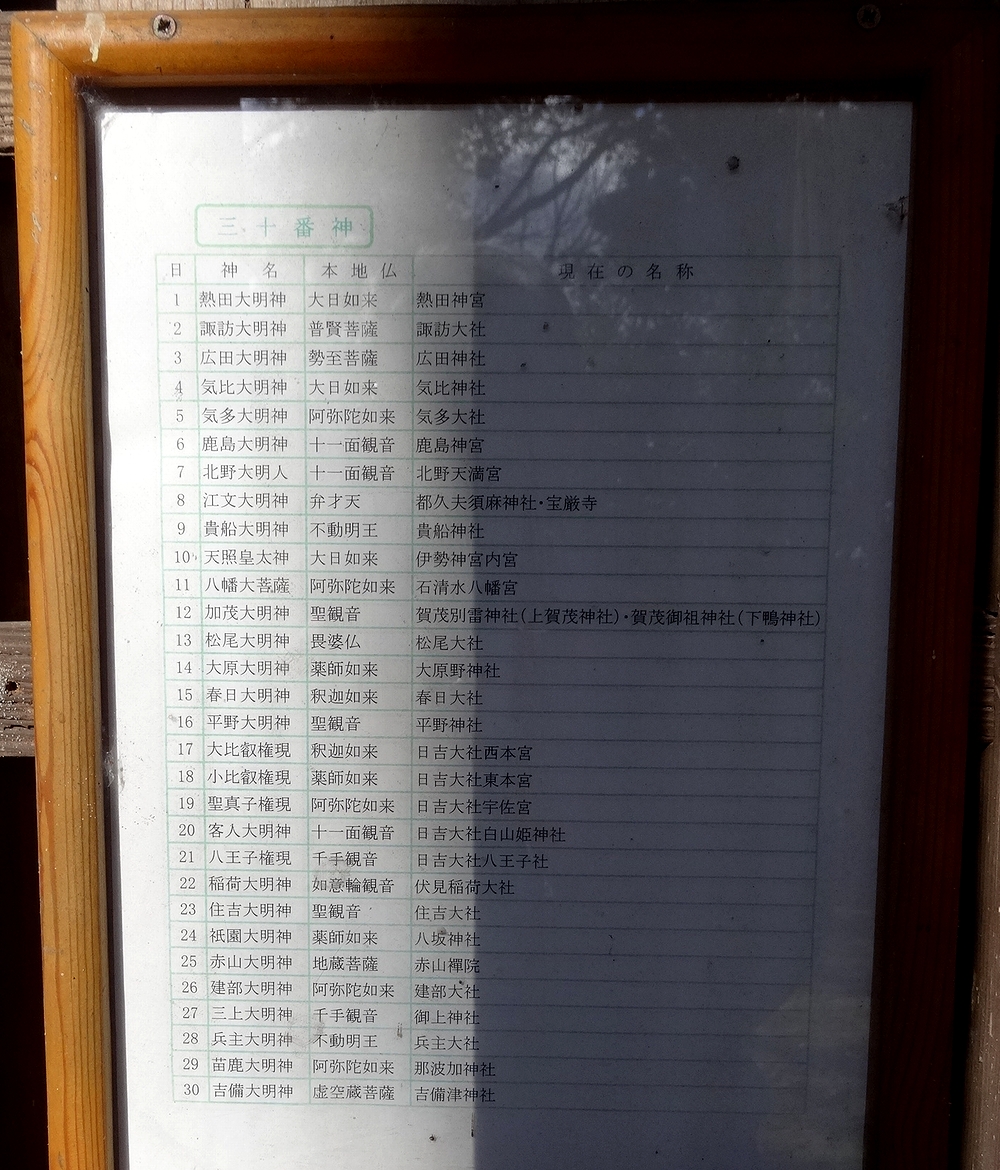 三十番神
日 神名 本地仏 現在の名称
1 熱田大明神 大日如来 熱田神宮
2 諏訪大明神 普賢菩薩 諏訪大社
3 広田大明神 勢至菩薩 広田神社
4 気比大明神 大日如来 気比神社
5 気多大明神 阿弥陀如来 気多大社
6 鹿島大明神 十一面観音 鹿島神宮
7 北野大明人 十一面観音 北野天満宮
8 江文大明神 弁才天 都久夫須麻神社・宝厳寺
9 貴船大明神 不動明王 貴船神社
10 天照皇太神 大日如来 伊勢神宮内宮
11 八幡大菩薩 阿弥陀如来 石清水八幡宮
12 加茂大明神 聖観音 賀茂別雷神社(上賀茂神社)・賀茂御祖神社(下鴨神社)
13 松尾大明神 畏婆仏 松尾大社
14 大原大明神 薬師如来 大原野神社
15 春日大明神 釈迦如来 春日大社
16 平野大明神 聖観音 平野神社
17 大比叡権現 釈迦如来 日吉大社西本宮
18 小比叡権現 薬師如来 日吉大社東本宮
19 聖真子権現 阿弥陀如来 日吉大社宇佐宮
20 客人大明神 十一面観音 日吉大社白山姫神社
21 八王子権現 千手観音 日吉大社八王子社
22 稲荷大明神 如意輪観音 伏見稲荷大社
23 住吉大明神 聖観音 住吉大社
24 祇園大明神 薬師如来 八坂神社
25 赤山大明神 地蔵菩薩 赤山禅院
26 建部大明神 阿弥陀如来 建部大社
27 三上大明神 千手観音 御上神社
28 兵主大明神 不動明王 兵主大社
29 苗鹿大明神 阿弥陀如来 那波加神社
30 吉備大明神 虚空蔵菩薩 吉備津神社